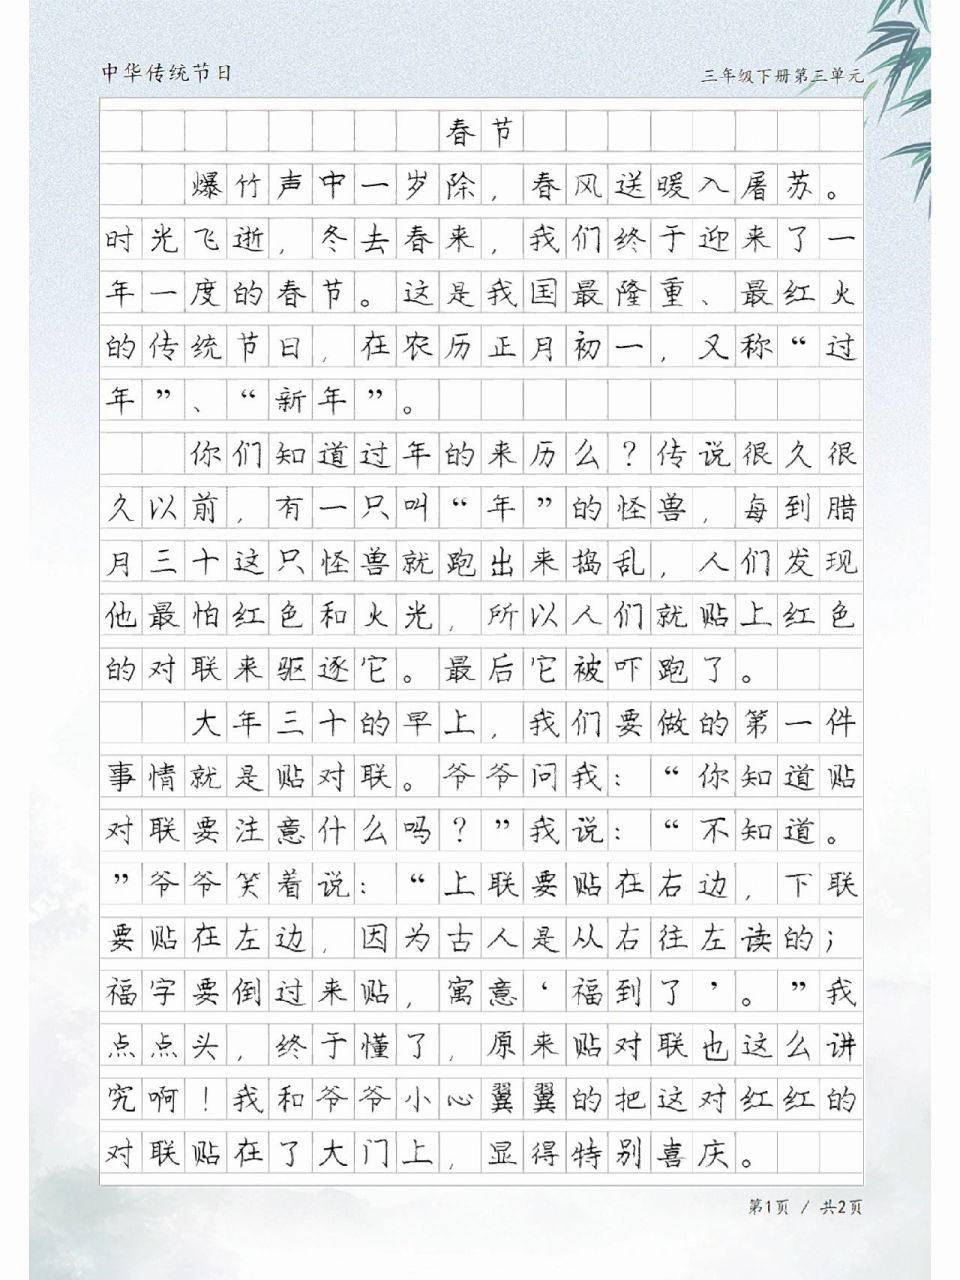 中华传统节日
三年级下册第三单元
春节
爆竹声中一岁除，春风送暖入屠苏。
时光飞逝，冬去春来，我们终于迎来了一
年一度的春节。这是我国最隆重、最红火
的传统节日，在农历正月初一，又称“过
年”、“新年”。
你们知道过年的来历么？传说很久很
久以前，有一只叫“年”的怪兽，每到腊
月三十这只怪兽就跑出来捣乱，人们发现
他最怕红色和火光，所以人们就贴上红色
的对联来驱逐它。最后它被吓跑了。
大年三十的早上，我们要做的第一件
事情就是贴对联。爷爷问我：“你知道贴
对联要注意什么吗？”我说：“不知道。
”爷爷笑着说：“上联要贴在右边，下联
要贴在左边，因为古人是从右往左读的；
福字要倒过来贴，寓意‘福到了’。”我
点点头，终于懂了，原来贴对联也这么讲
究啊！我和爷爷小心翼翼的把这对红红的
对联贴在了大门上，显得特别喜庆。
第1页 / 共2页